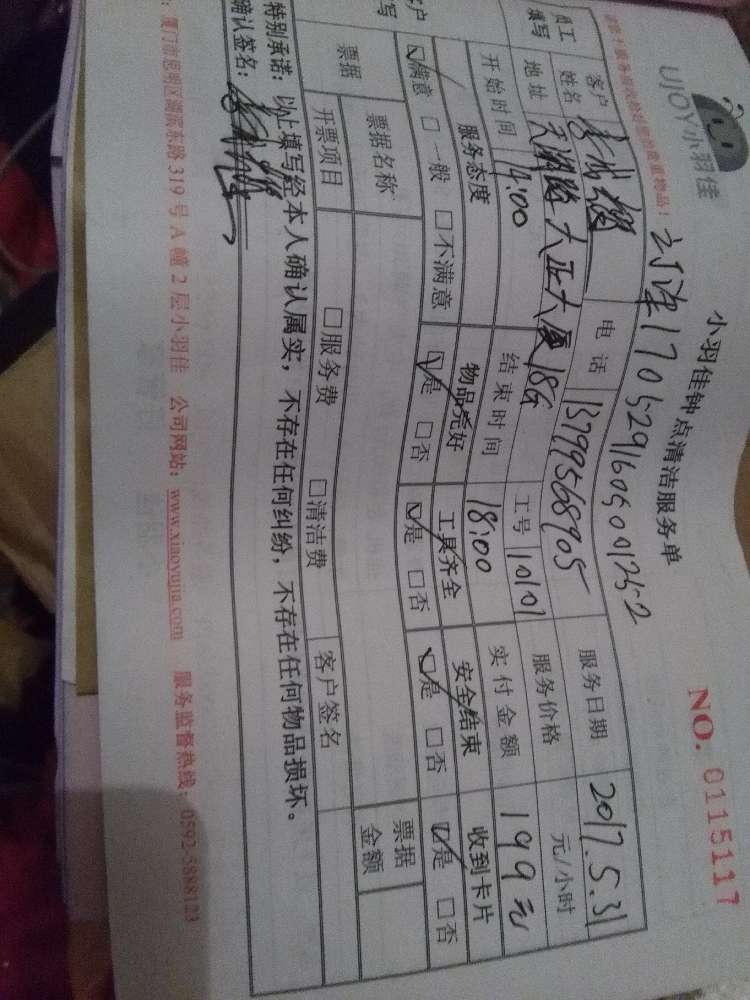 UJOY小羽佳
小羽佳钟点清洁服务单
NO. 0115117
170529160500125-2
员工填写 客户姓名 电话 13799568905 服务日期 2017.5.31
地址 天湖路大正大厦18G 工号 10107 服务价格 元/小时
开始时间 14:00 结束时间 18:00 实付金额 199元
服务态度 物品完好 工具齐全 安全结束 收到卡片
☑满意 □一般 □不满意 ☑是 □否 ☑是 □否 ☑是 □否 ☑是 □否
票据 票据名称 票据金额
开票项目 □服务费 □清洁费 客户签名
特别承诺：以上填写经本人确认属实，不存在任何纠纷，不存在任何物品损坏。
确认签名：
厦门市思明区湖滨东路 319 号 A 幢 2 层小羽佳 公司网站：www.xiaoyujia.com 服务监督热线：0592-5888123